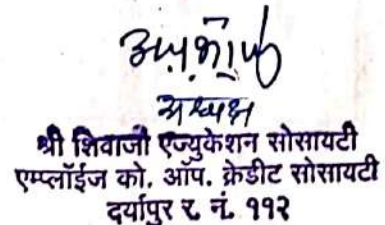 अध्यक्ष
श्री शिवाजी एज्युकेशन सोसायटी
एम्प्लॉईज को. ऑप. क्रेडीट सोसायटी
दर्यापुर र. नं. ११२